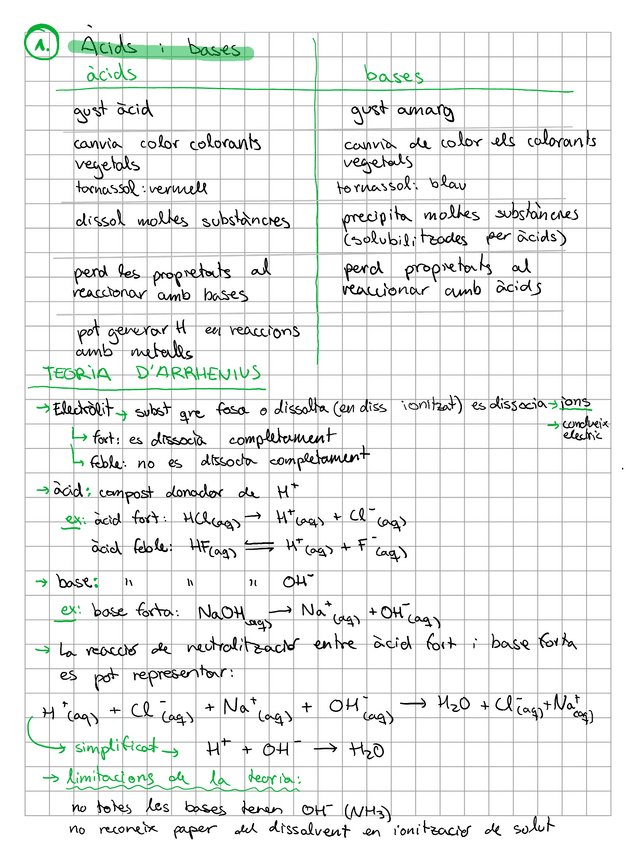 1. Àcids i bases
àcids bases
gust àcid gust amarg
canvia color colorants canvia de color els colorants
vegetals vegetals
tornassol: vermell tornassol: blau
dissol moltes substàncies precipita moltes substàncies
(solubilitzades per àcids)
perd les propietats al perd propietats al
reaccionar amb bases reaccionar amb àcids
pot generar H en reaccions
amb metalls
TEORIA D'ARRHENIUS
→ Electròlit → subst que fosa o dissolta (en diss ionitzat) es dissocia → ions
→ condueix
electric
↳ fort: es dissocia completament
↳ feble: no es dissocia completament
→ àcid: compost donador de H⁺
ex: àcid fort: HCl(aq) → H⁺(aq) + Cl⁻(aq)
àcid feble: HF(aq) ⇌ H⁺(aq) + F⁻(aq)
→ base: " " " OH⁻
ex: base forta: NaOH(aq) → Na⁺(aq) + OH⁻(aq)
→ La reacció de neutralització entre àcid fort i base forta
es pot representar:
H⁺(aq) + Cl⁻(aq) + Na⁺(aq) + OH⁻(aq) → H₂O + Cl⁻(aq) + Na⁺(aq)
→ simplificat → H⁺ + OH⁻ → H₂O
→ limitacions de la teoria:
no totes les bases tenen OH⁻ (NH₃)
no reconeix paper del dissolvent en ionització de solut